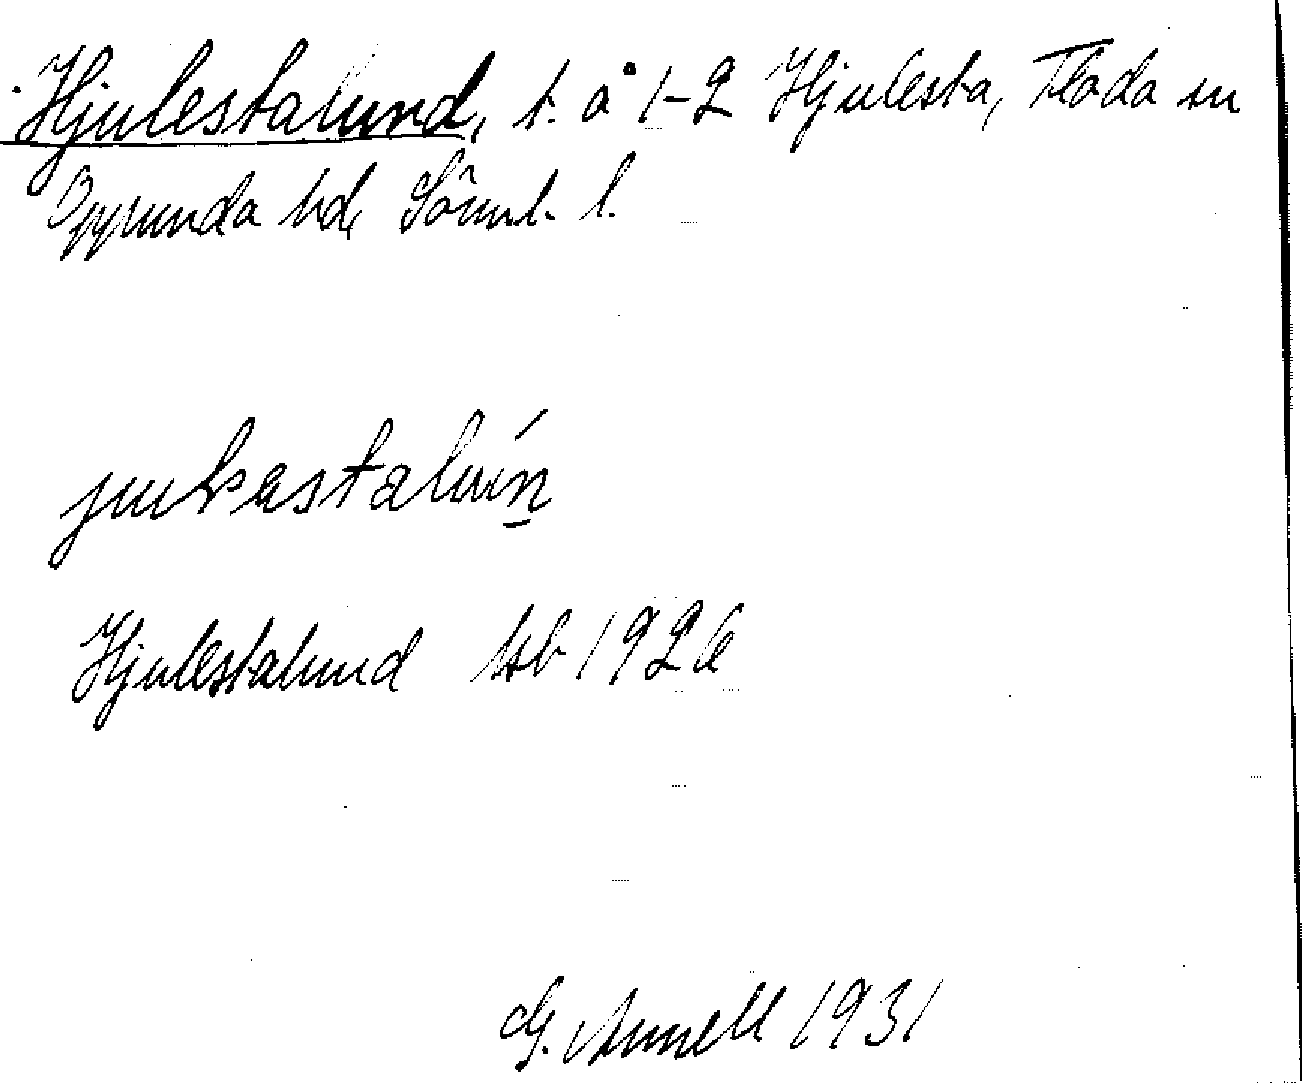 Hjulestalund, t. å 1-2 Hjulesta, Floda sn
Oppunda hd, Söml. l.
Hjulestalund hb 1926
G. Annell 1931